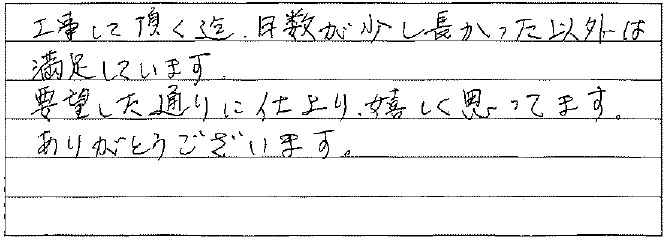 工事して頂く迄、日数が少し長かった以外は
満足しています。
要望した通りに仕上り、嬉しく思ってます。
ありがとうございます。